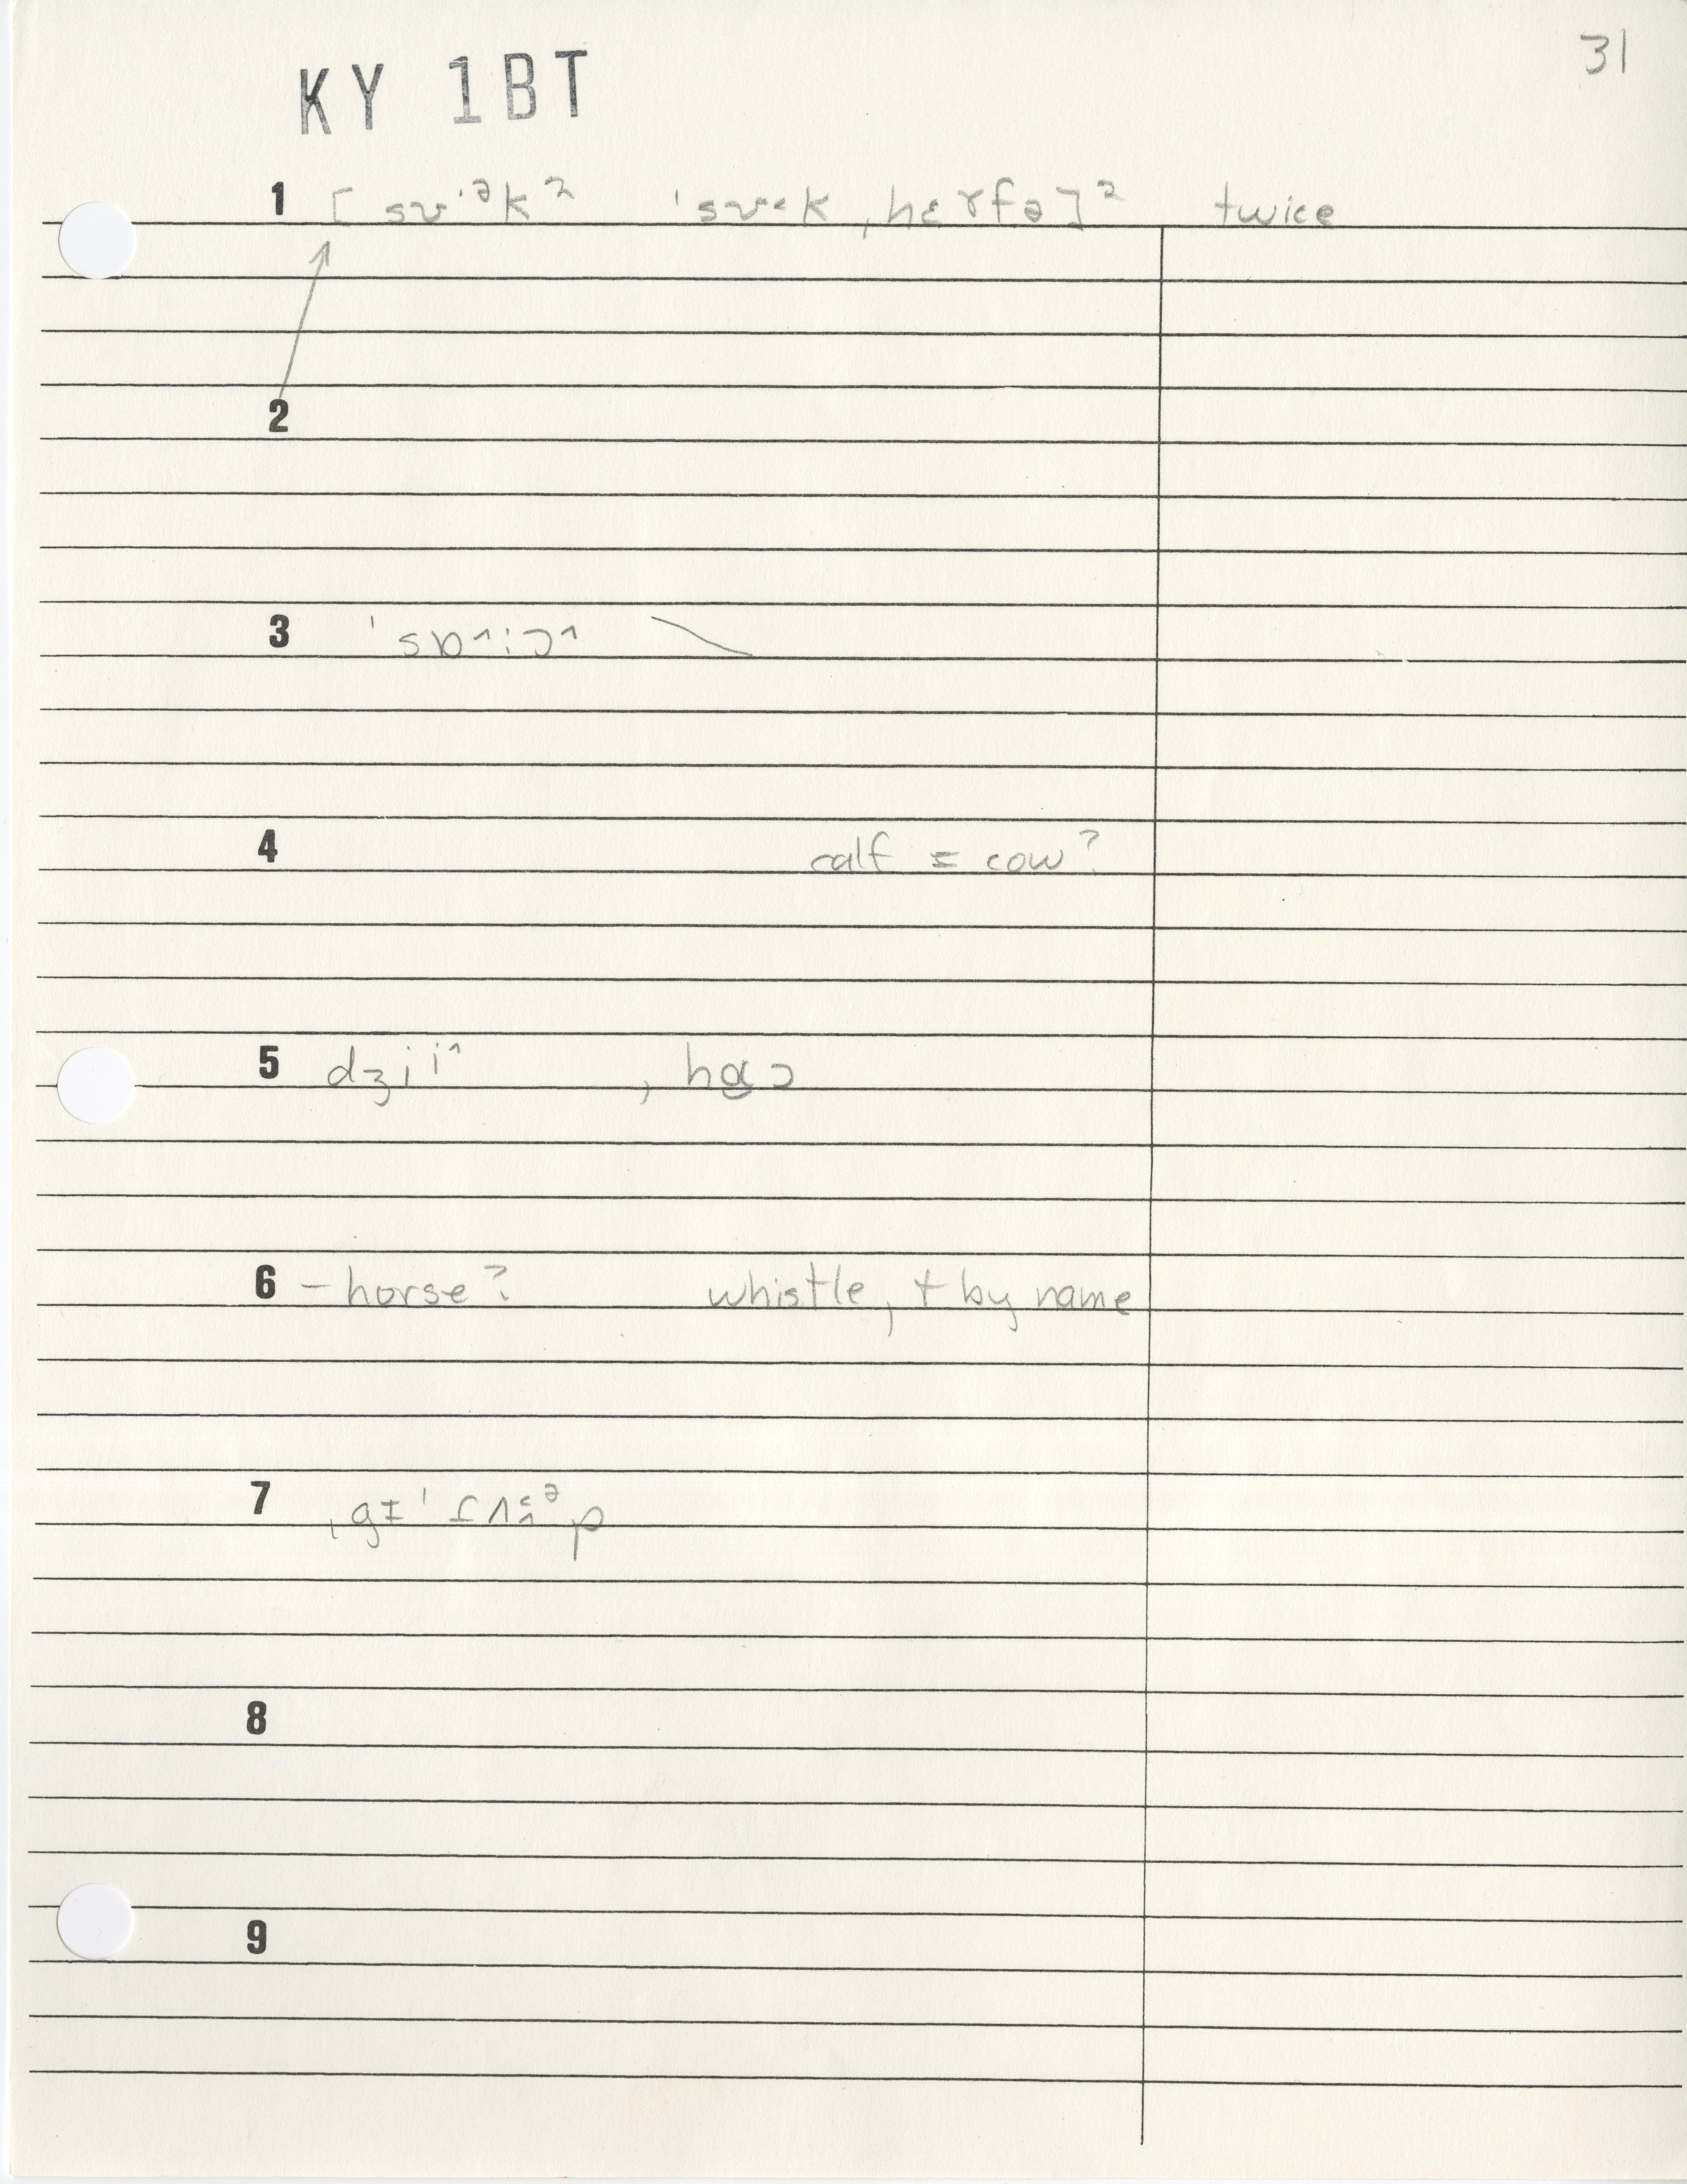 31
KY 1BT
1 [ sʊ'ᵊk² 'sʊ˂k ˌhɛɤfə]² twice
2
3 'sɒ^:ɔ^
4 calf = cow?
5 dʒiⁱ^ , hɑɔ
6 – horse? whistle, + by name
7
8
9